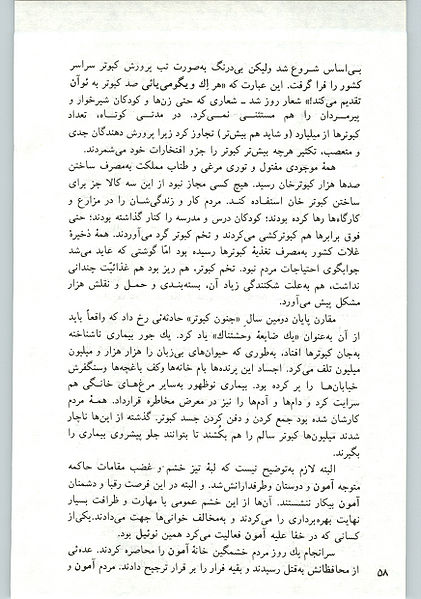 بی‌اساس شروع شد ولیکن بی‌درنگ به‌صورت تب پرورش کبوتر سراسر
کشور را فرا گرفت. این عبارت که «هر اِك ویگومی‌پائی صد کبوتر به توآن
تقدیم می‌کند!» شعار روز شد ـ شعاری که حتی زن‌ها و کودکان شیرخوار و
پیرمردان را هم مستثنی نمی‌کرد. در مدتی کوتاه، تعداد
کبوترها از میلیارد (و شاید هم بیش‌تر) تجاوز کرد زیرا پرورش دهندگان جدی
و متعصب، تکثیر هرچه بیش‌تر کبوتر را جزو افتخارات خود می‌شمردند.
همهٔ موجودی مفتول و توری مرغی و طناب مملکت به‌مصرف ساختن
صدها هزار کبوترخان رسید. هیچ کسی مجاز نبود از این سه کالا جز برای
ساختن کبوتر خان استفاده کند. مردم کار و زندگی‌شان را در مزارع و
کارگاه‌ها رها کرده بودند؛ کودکان درس و مدرسه را کنار گذاشته بودند؛ حتی
فوق برابرها هم کبوترکشی می‌کردند و تخم کبوتر گرد می‌آوردند. همهٔ ذخیرهٔ
غلات کشور به‌مصرف تغذیهٔ کبوترها رسیده بود امّا گوشتی که عاید می‌شد
جوابگوی احتیاجات مردم نبود. تخم کبوتر، هم ریز بود هم غذائیّت چندانی
نداشت، هم به‌علت شکنندگی زیاد آن، بسته‌بندی و حمل و نقلش هزار
مشکل پیش می‌آورد.
مقارن پایان دومین سالِ «جنون کبوتر» حادثه‌ئی رخ داد که واقعاً باید
از آن به‌عنوان «یك ضایعهٔ وحشتناك» یاد کرد. یك جور بیماری ناشناخته
به‌جان کبوترها افتاد، به‌طوری که حیوان‌های بی‌زبان را هزار هزار و میلیون
میلیون تلف می‌کرد. اجساد این پرنده‌ها بام خانه‌ها وکف باغچه‌ها وسنگفرش
خیابان‌ها را پر کرده بود. بیماری نوظهور به‌سایر مرغ‌های خانگی هم
سرایت کرد و دام‌ها و آدم‌ها را نیز در معرض مخاطره قرارداد. همهٔ مردم
کارشان شده بود جمع کردن و دفن کردن جسد کبوتر. گذشته از این‌ها ناچار
شدند میلیون‌ها کبوتر سالم را هم بکُشند تا بتوانند جلو پیشروی بیماری را
بگیرند.
البته لازم به‌توضیح نیست که لبهٔ تیز خشم و غضب مقامات حاکمه
متوجه آمون و دوستان وطرفدارانش‌شد. و البته در این فرصت رقبا و دشمنان
آمون بیکار ننشستند. آن‌ها از این خشم عمومی با مهارت و ظرافت بسیار
نهایت بهره‌برداری را می‌کردند و به‌مخالف خوانی‌ها جهت می‌دادند.یکی‌از
کسانی که در خفا علیه آمون فعالیت می‌کرد همین نوئیل بود.
سرانجام یك روز مردم خشمگین خانهٔ آمون را محاصره کردند. عده‌ئی
از محافظانش به‌قتل رسیدند و بقیه فرار را بر قرار ترجیح دادند. مردم آمون و
۵۸